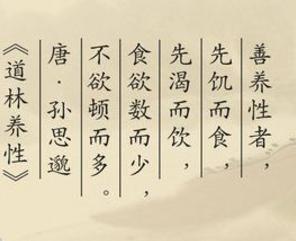 善养性者，
先饥而食，
先渴而饮，
食欲数而少，
不欲顿而多。
唐·孙思邈
《道林养性》